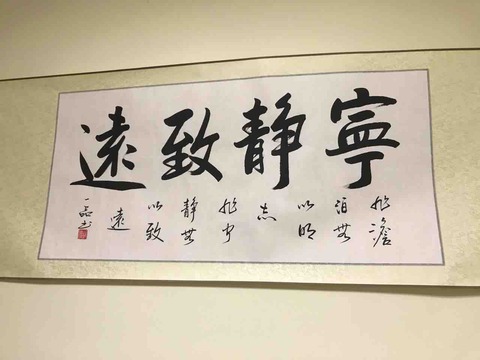 寧静致遠
非澹
泊無
以明
志
非宁
静無
以致
遠